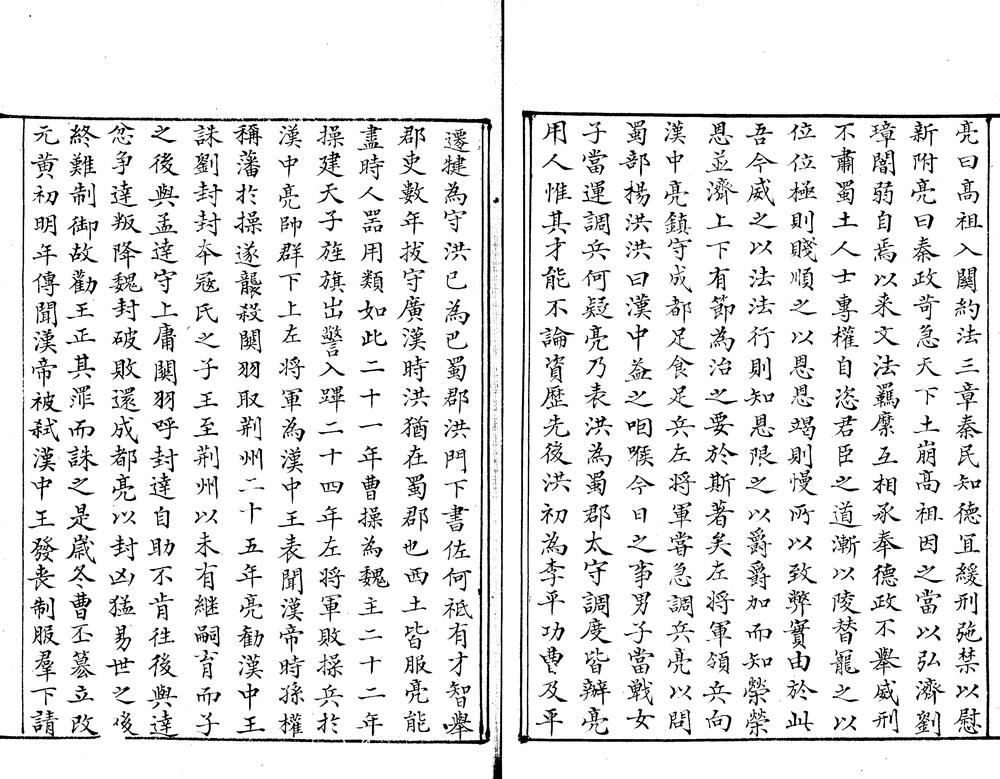 亮曰高祖入關約法三章秦民知德宜緩刑弛禁以慰
新附亮曰秦政苛急天下土崩高祖因之當以弘濟劉
璋闇弱自焉以来文法羈縻互相承奉德政不舉威刑
不肅蜀土人士專權自恣君臣之道漸以陵替寵之以
位位極則賤順之以恩恩竭則慢所以致弊實由於此
吾今威之以法法行則知恩限之以爵爵加而知榮榮
恩並濟上下有節為治之要於斯著矣左將軍領兵向
漢中亮鎮守成都足食足兵左將軍嘗急調兵亮以問
蜀部楊洪洪曰漢中益之咽喉今日之事男子當戰女
子當運調兵何疑亮乃表洪為蜀郡太守調度皆辦亮
用人惟其才能不論資歷先後洪初為李平功曹及平
遷犍為守洪已為巴蜀郡洪門下書佐何祗有才智舉
郡吏數年拔守廣漢時洪猶在蜀郡也西土皆服亮能
盡時人器用類如此二十一年曹操為魏主二十二年
操建天子旌旗出警入蹕二十四年左將軍敗操兵於
漢中亮帥群下上左將軍為漢中王表聞漢帝時孫權
稱藩於操遂襲殺關羽取荆州二十五年亮勸漢中王
誅劉封封本冦氏之子王至荆州以未有継嗣育而子
之後與孟達守上庸關羽呼封達自助不肯往後與達
忿争達叛降魏封破敗還成都亮以封凶猛易世之後
終難制御故勸王正其罪而誅之是歲冬曹丕簒立改
元黄初明年傳聞漢帝被弑漢中王發喪制服羣下請